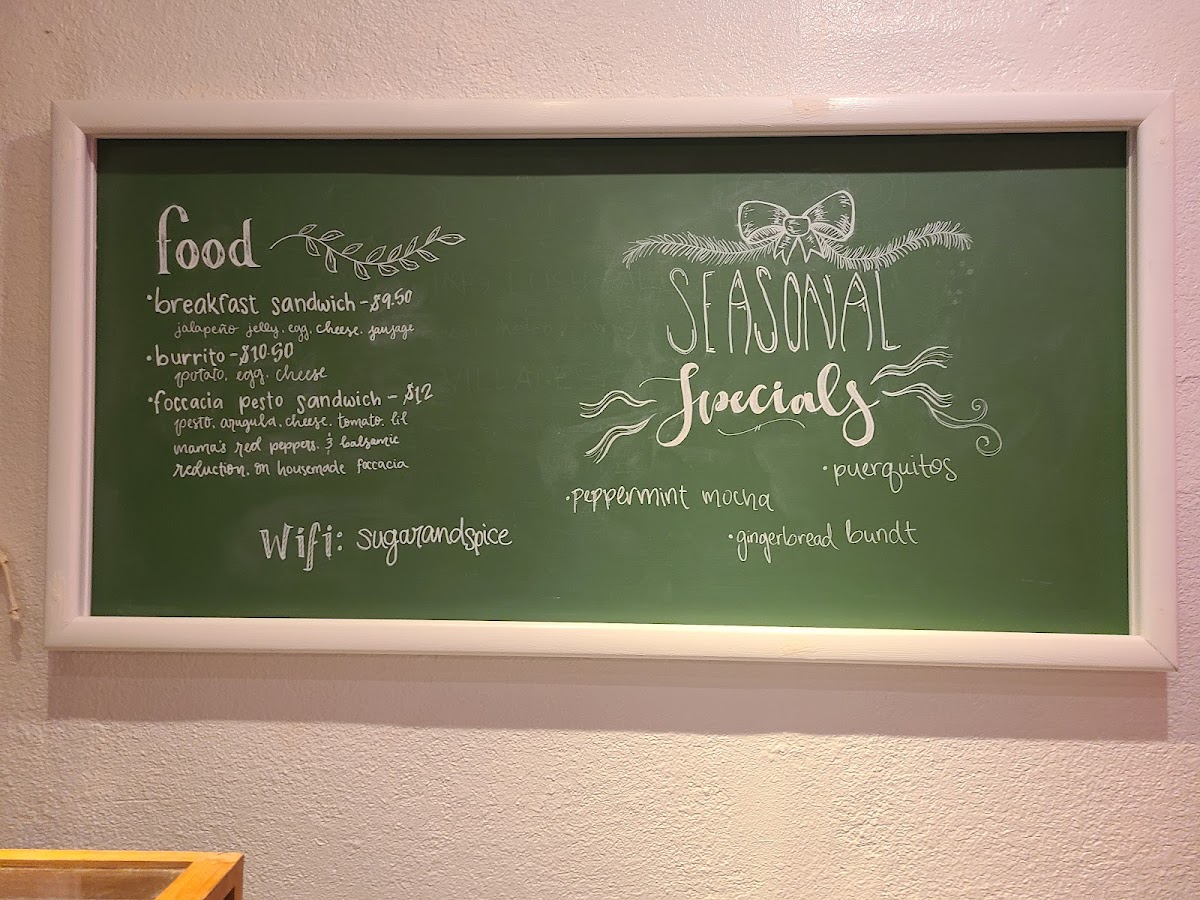 food
•breakfast sandwich - $9.50
jalapeño jelly, egg, cheese, sausage
•burrito - $10.50
potato, egg, cheese
•foccacia pesto sandwich - $12
pesto, arugula, cheese, tomato, lil
mama's red peppers, & balsamic
reduction, on housemade foccacia
Wifi: sugarandspice
SEASONAL
Specials
•puerquitos
•peppermint mocha
•gingerbread bundt